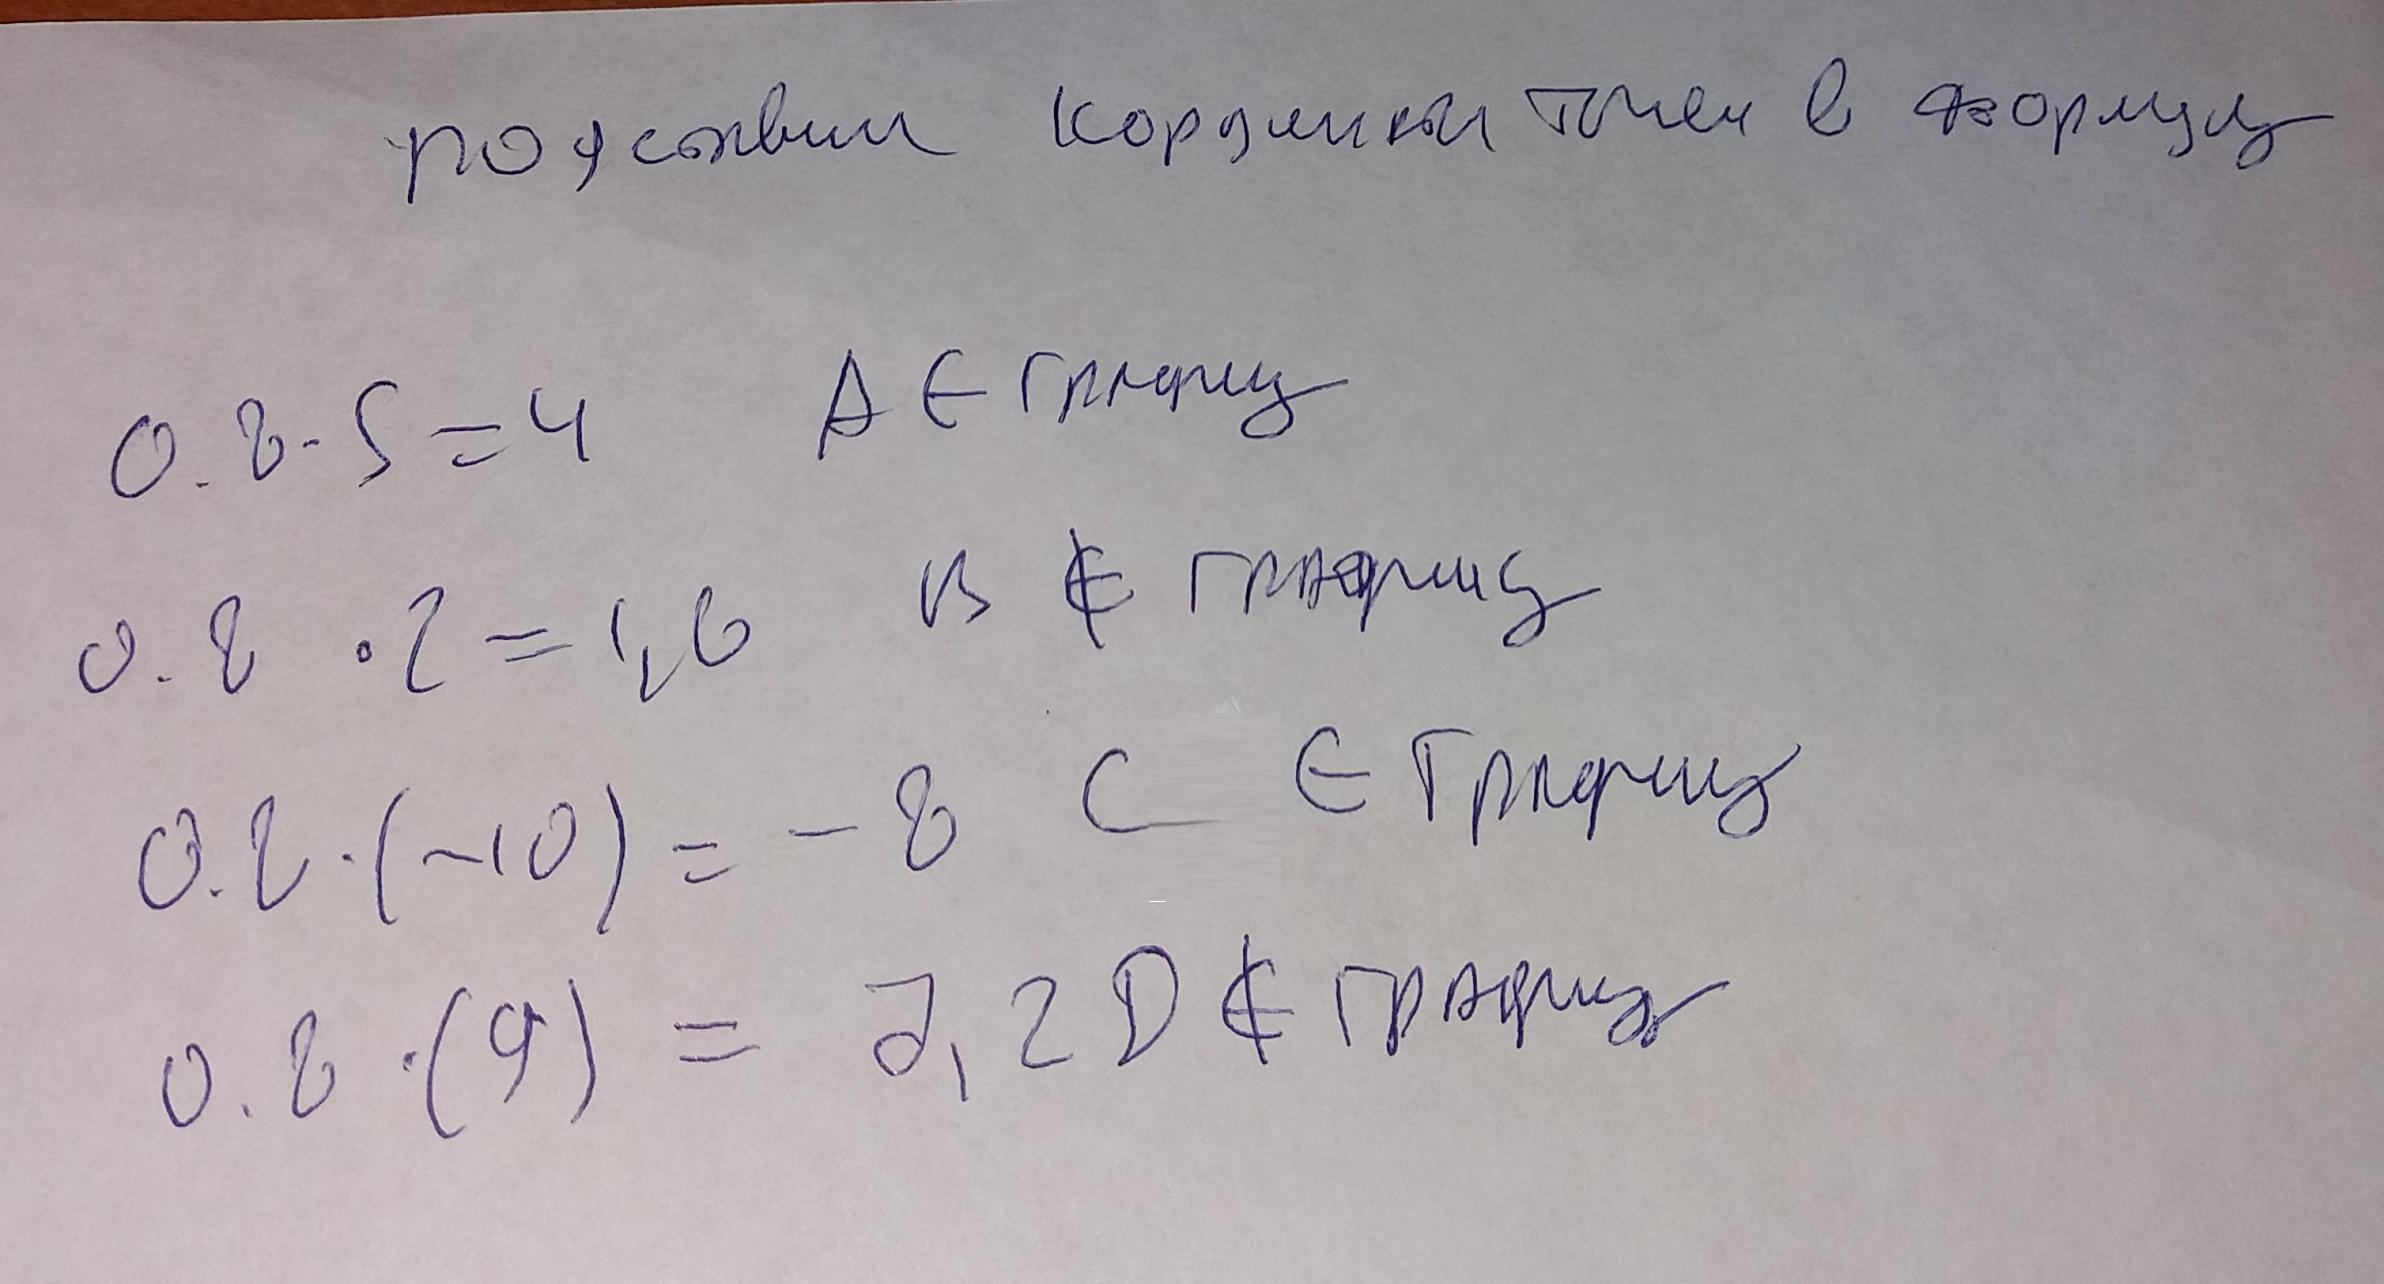 подставим кординаты точек в формулу
0.8·5=4 A ∈ графику
0.8 ·2=1,6 B ∉ графику
0.8·(-10)=-8 C ∈ графику
0.8 ·(9) = 7,2 D ∉ графику